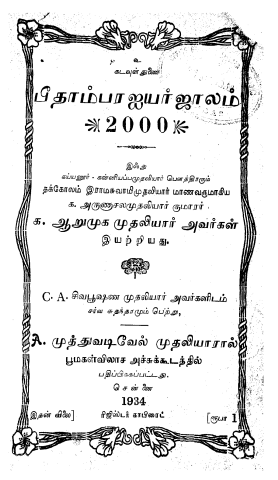 உ
கடவுள் துணை
பீதாம்பர ஐயர்ஜாலம்
2000
இஃது
எய்யனூர் - கன்னியப்பமுதலியார் பௌத்திரரும்
தக்கோலம் இராமசுவாமிமுதலியார் மாணவருமாகிய
க. அருணாசலமுதலியார் குமாரர்
க. ஆறுமுக முதலியார் அவர்கள்
இயற்றியது.
C. A. சிவபூஷண முதலியார் அவர்களிடம்
சர்வ சுதந்தரமும் பெற்று,
A. முத்துவடிவேல் முதலியாரால்
பூமகள்விலாச அச்சுக்கூடத்தில்
பதிப்பிக்கப்பட்டது.
சென்னை
1934
இதன் விலை] ரிஜிஸ்டர் காபிரைட் [ரூபா 1